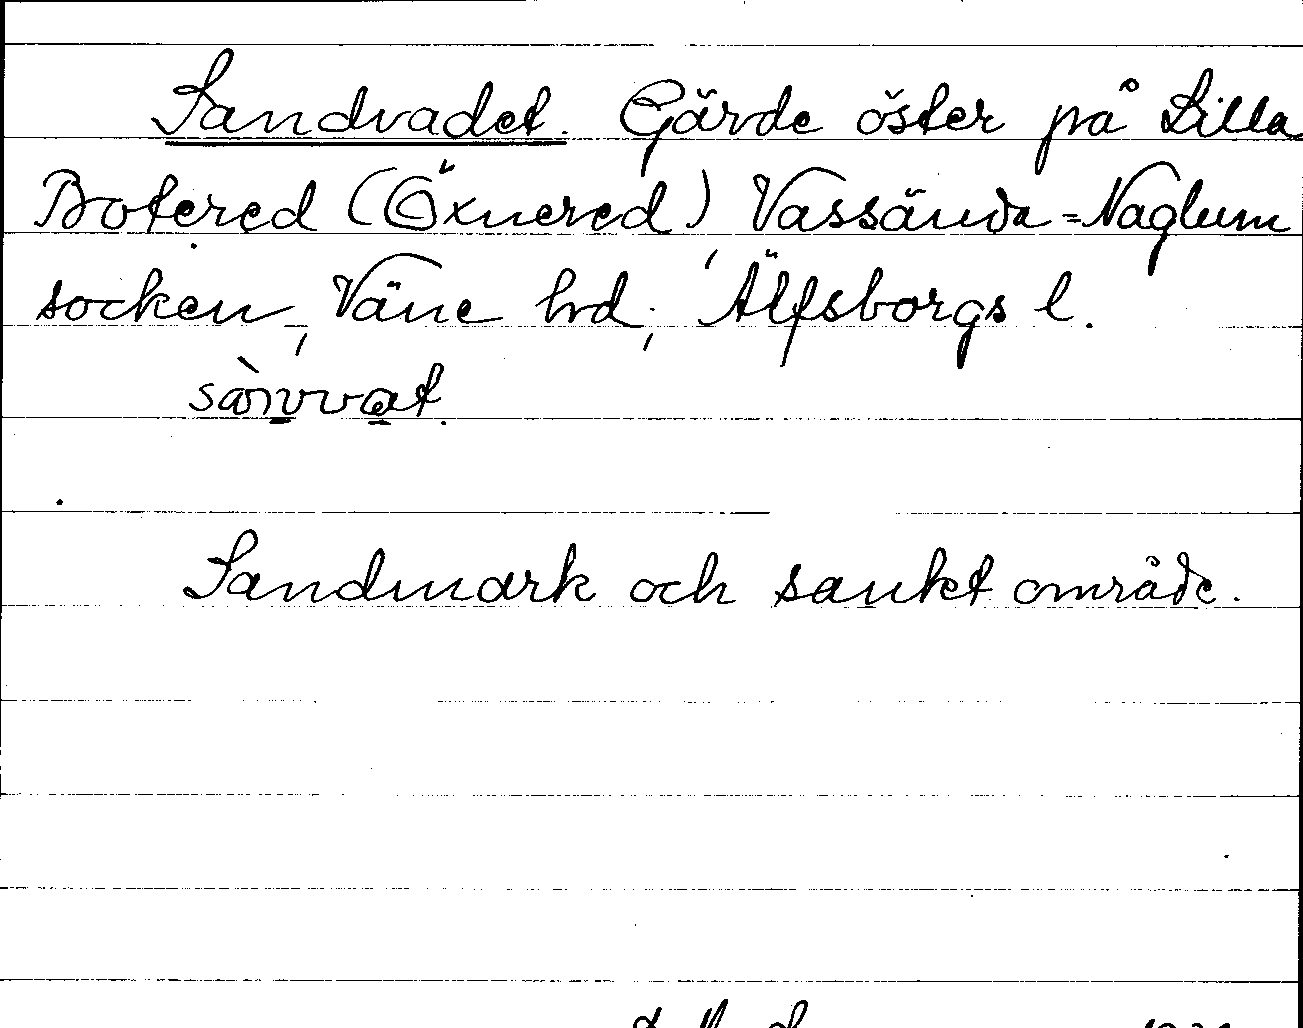 Sandvadet. Gärde öster på Lilla
Botered (Öxnered), Vassända=Naglum
socken, Väne hd, Älfsborgs l.
Sandmark och sankt område.